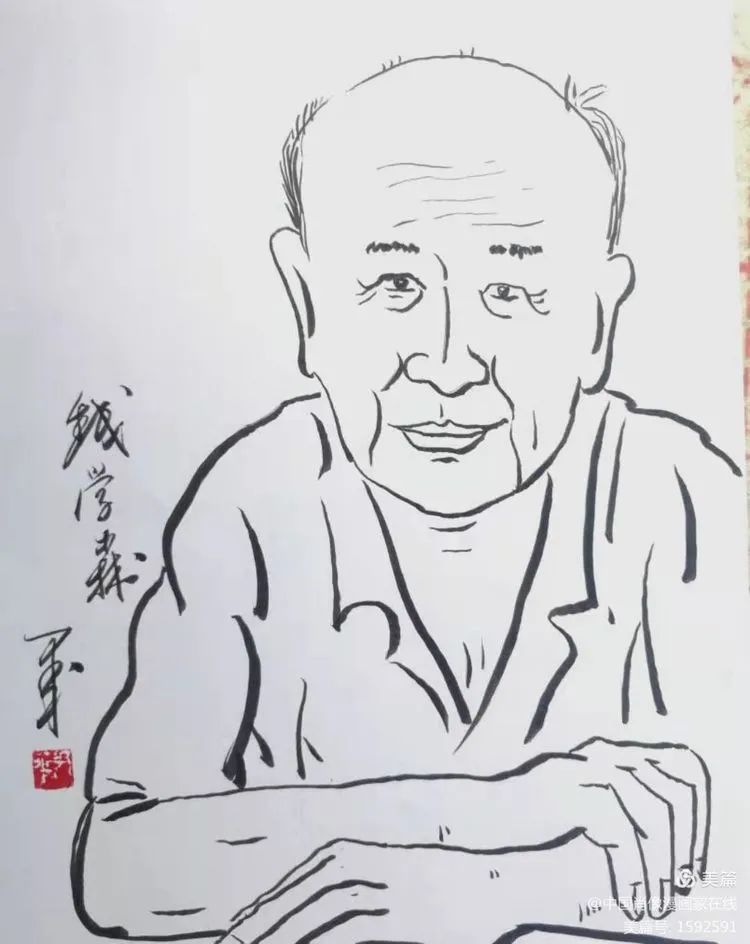 钱学森
军
美篇
@中国肖像漫画家在线
美篇号: 1592591